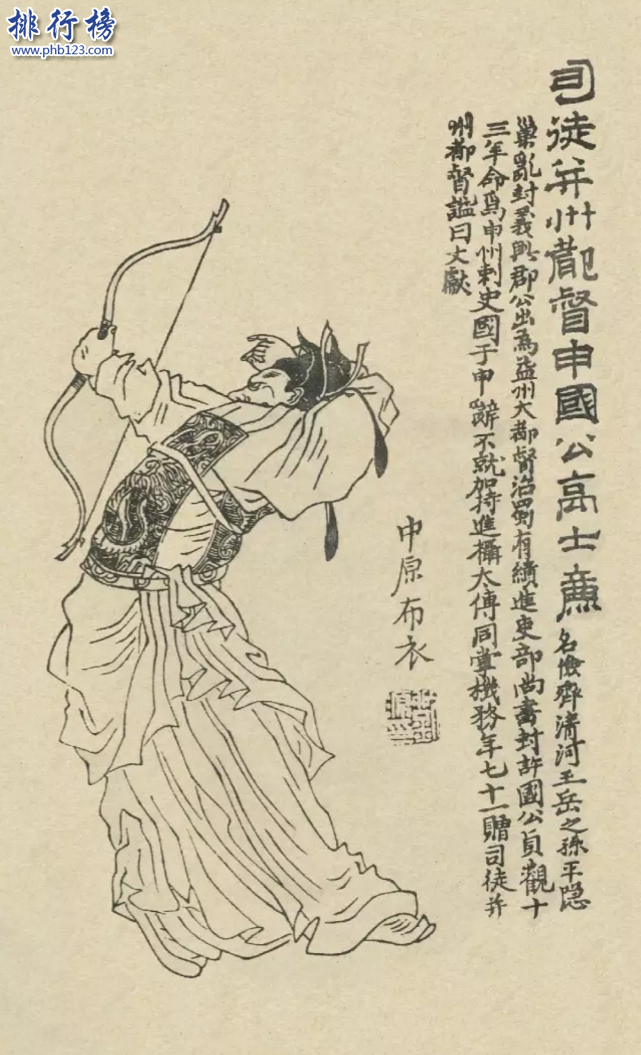 排行榜
www.phb123.com
司徒并州都督申國公高士廉
名儉齊清河王岳之孫平隐
巢亂封義興郡公出為益州大都督治蜀有績進吏部尚書封許國公貞觀十
三年命爲申州刺史國于申辭不就加特進攝太傅同掌機務年七十一贈司徒并
州都督謚曰文獻
中原布衣